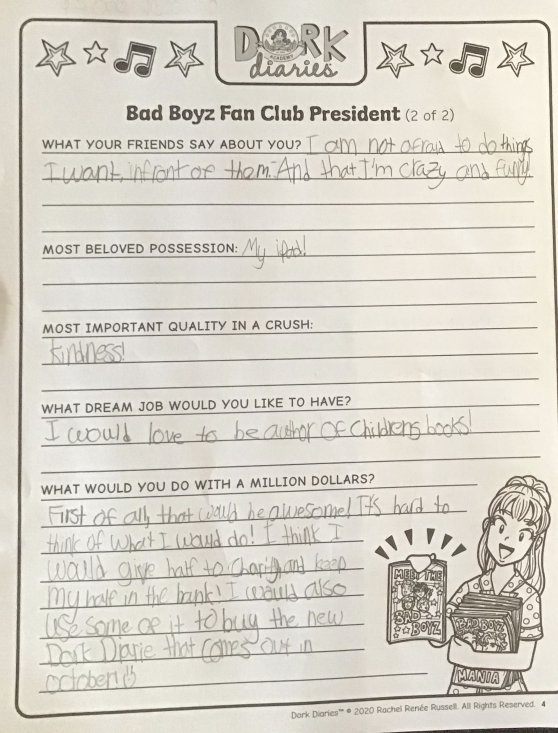 DORK
ACADEMY
diaries
Bad Boyz Fan Club President (2 of 2)
WHAT YOUR FRIENDS SAY ABOUT YOU? I am not afraid to do things
I want, infront of them. And that I'm crazy and funny.
MOST BELOVED POSSESSION: My ipad!
MOST IMPORTANT QUALITY IN A CRUSH:
kindness!
WHAT DREAM JOB WOULD YOU LIKE TO HAVE?
I would love to be author of Childrens books!
WHAT WOULD YOU DO WITH A MILLION DOLLARS?
First of all, that would be awesome! It's hard to
think of what I would do! I think I
would give half to Charity and keep
my half in the bank! I would also
use some of it to buy the new
Dork Diarie that comes out in
october!
MEET THE
BAD
BOYZ
BAD BOYZ
MANIA
Dork Diaries™ © 2020 Rachel Renée Russell. All Rights Reserved. 4